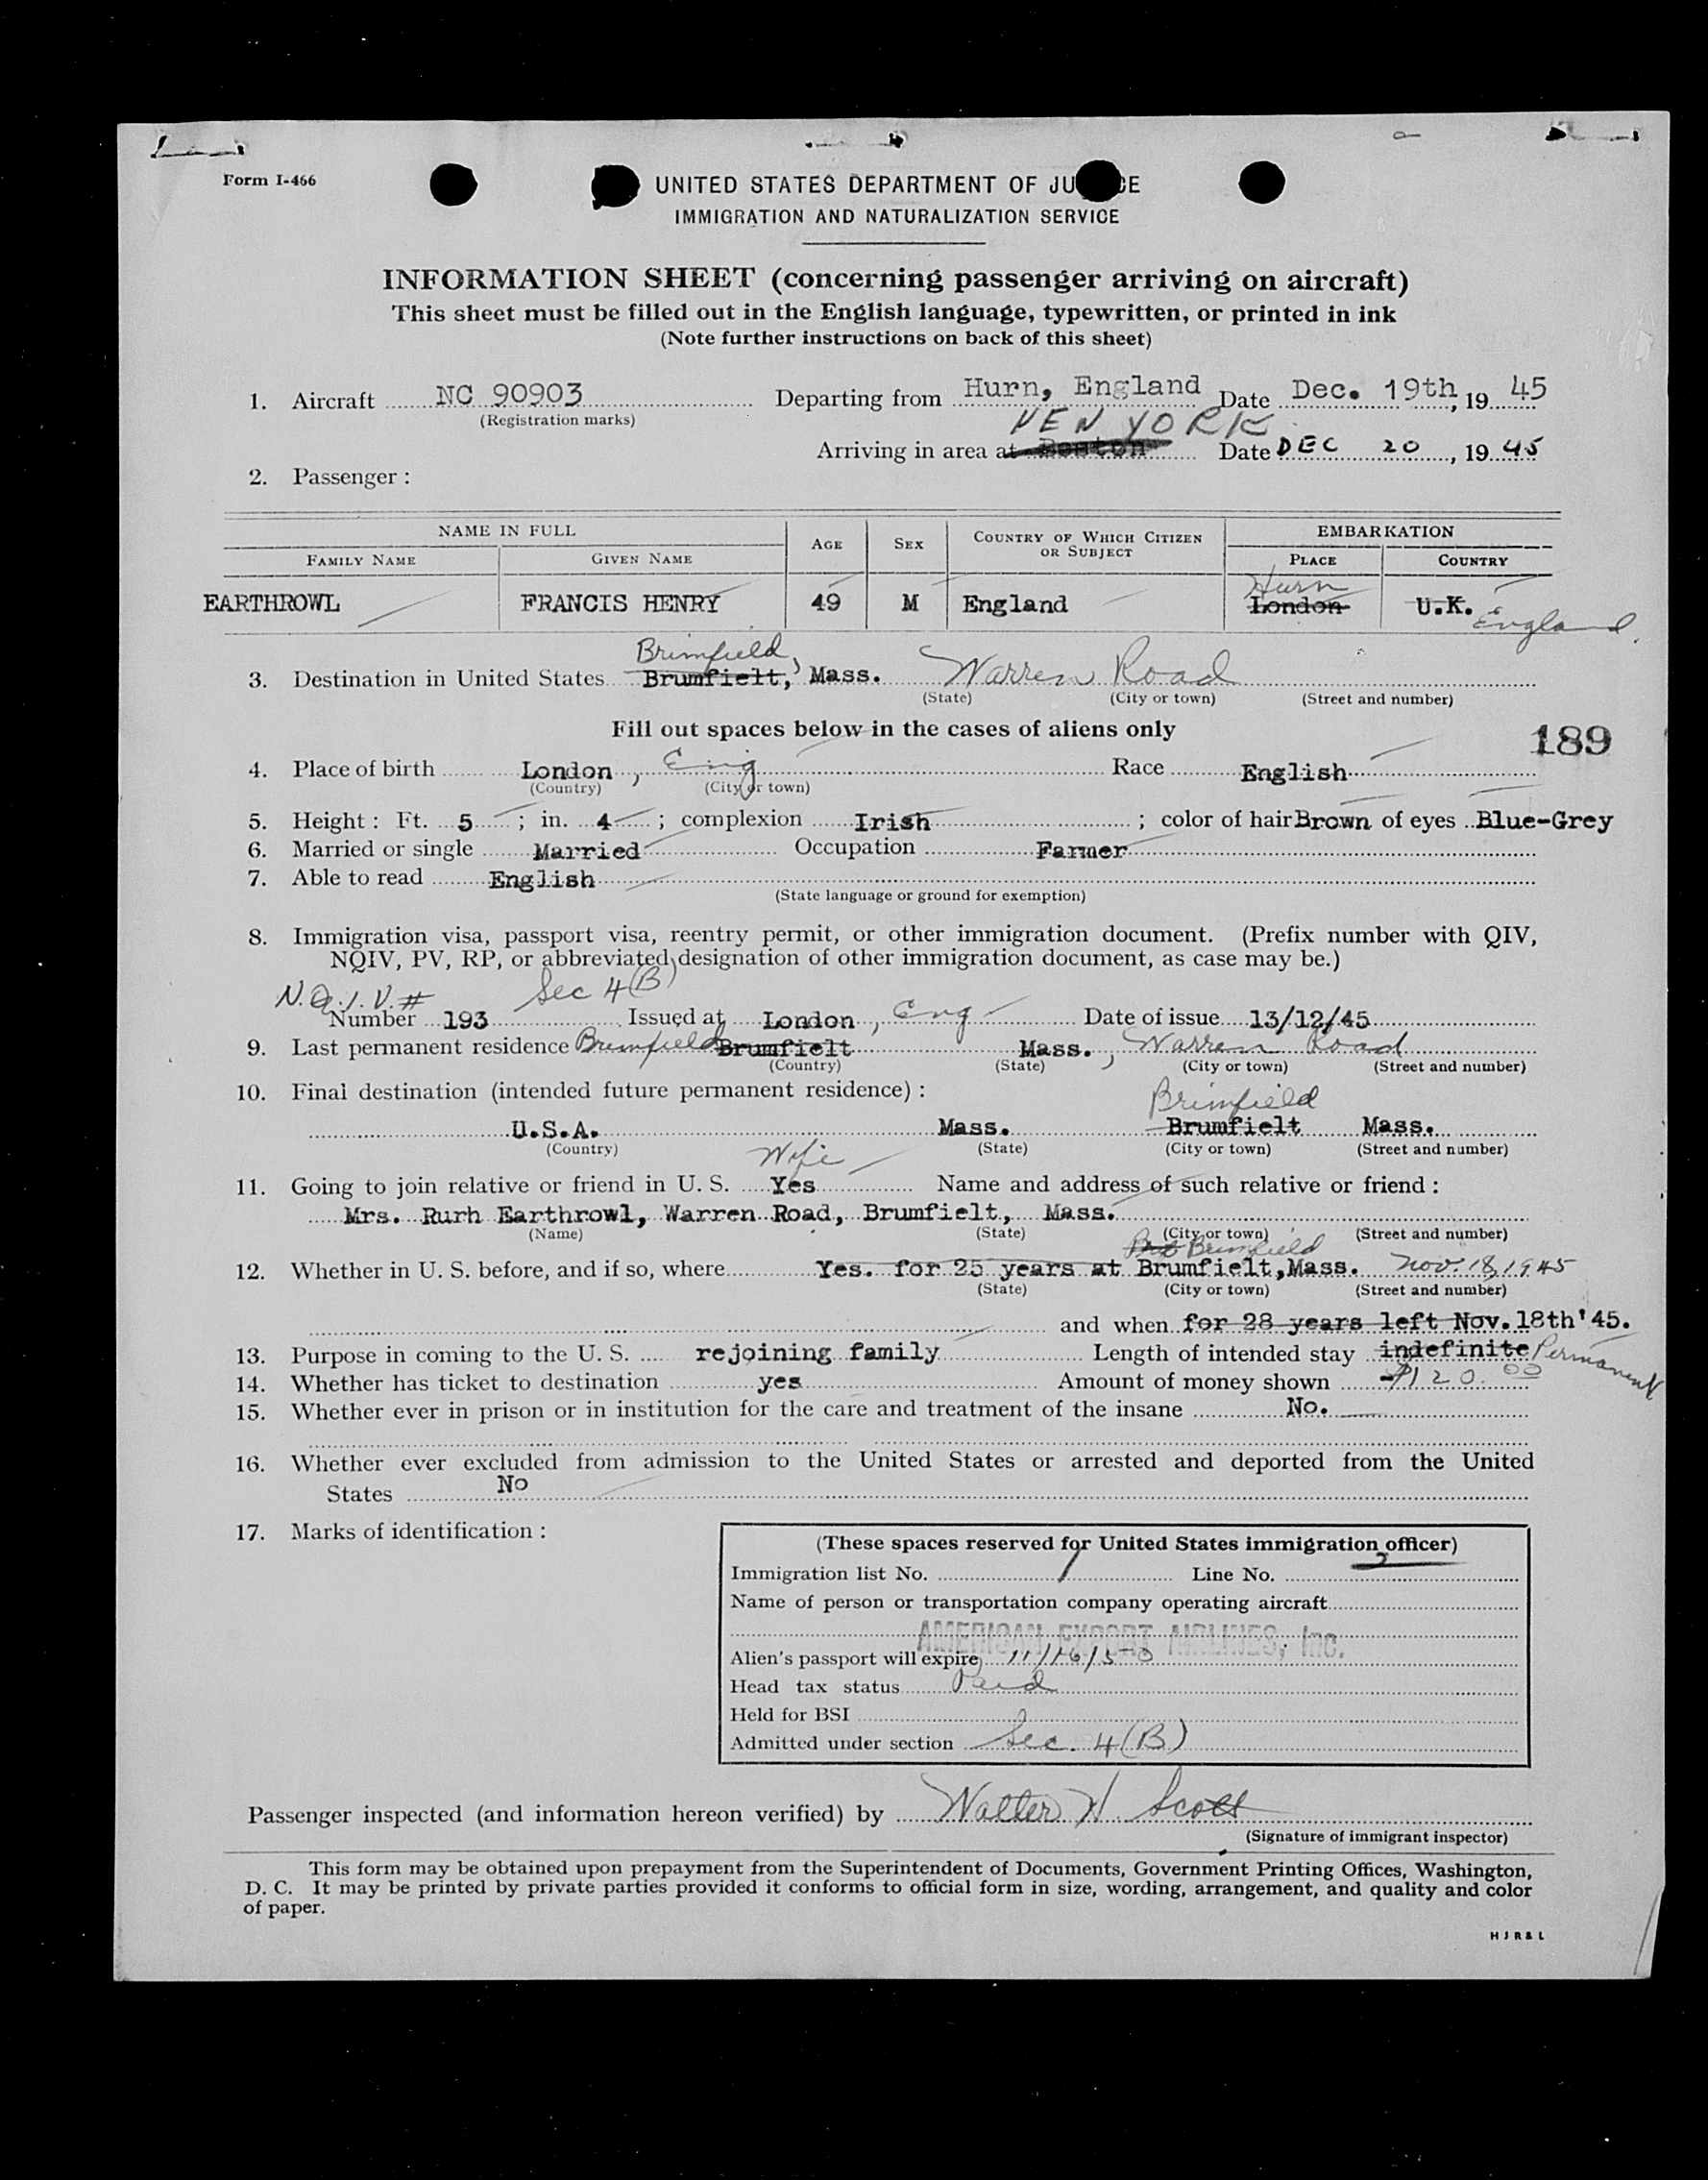 Form I-466
UNITED STATES DEPARTMENT OF JU CE
IMMIGRATION AND NATURALIZATION SERVICE
INFORMATION SHEET (concerning passenger arriving on aircraft)
This sheet must be filled out in the English language, typewritten, or printed in ink
(Note further instructions on back of this sheet)
1. Aircraft NC 90903 Departing from Hurn, England Date Dec. 19th, 19 45
(Registration marks)
NEW YORK
Arriving in area at Boston Date DEC 20, 19 45
2. Passenger :
NAME IN FULL AGE SEX COUNTRY OF WHICH CITIZEN OR SUBJECT EMBARKATION
FAMILY NAME GIVEN NAME PLACE COUNTRY
Hurn
EARTHROWL FRANCIS HENRY 49 M England London U.K. England.
Brimfield
3. Destination in United States Brumfielt, Mass. Warren Road
(State) (City or town) (Street and number)
Fill out spaces below in the cases of aliens only
189
4. Place of birth London, Eng Race English
(Country) (City or town)
5. Height : Ft. 5 ; in. 4 ; complexion Irish ; color of hair Brown of eyes Blue-Grey
6. Married or single Married Occupation Farmer
7. Able to read English
(State language or ground for exemption)
8. Immigration visa, passport visa, reentry permit, or other immigration document. (Prefix number with QIV,
NQIV, PV, RP, or abbreviated designation of other immigration document, as case may be.)
N.Q.I.V.# Sec 4(B)
Number 193 Issued at London, Eng Date of issue 13/12/45
9. Last permanent residence Brimfield Brumfielt Mass., Warren Road
(Country) (State) (City or town) (Street and number)
10. Final destination (intended future permanent residence) :
Brimfield
U.S.A. Mass. Brumfielt Mass.
(Country) (State) (City or town) (Street and number)
Wife
11. Going to join relative or friend in U. S. Yes Name and address of such relative or friend :
Mrs. Rurh Earthrowl, Warren Road, Brumfielt, Mass.
(Name) (State) (City or town) (Street and number)
Brimfield
12. Whether in U. S. before, and if so, where Yes. for 25 years at Brumfielt, Mass. Nov. 18, 1945
(State) (City or town) (Street and number)
and when for 28 years left Nov. 18th '45.
13. Purpose in coming to the U. S. rejoining family Length of intended stay indefinite Permanent
14. Whether has ticket to destination yes Amount of money shown $120.00
15. Whether ever in prison or in institution for the care and treatment of the insane No.
16. Whether ever excluded from admission to the United States or arrested and deported from the United
States No
17. Marks of identification :
(These spaces reserved for United States immigration officer)
Immigration list No. 1 Line No. 2
Name of person or transportation company operating aircraft
AMERICAN EXPORT AIRLINES, Inc.
Alien's passport will expire 11/16/50
Head tax status Paid
Held for BSI
Admitted under section Sec. 4(B)
Passenger inspected (and information hereon verified) by Walter H. Scott
(Signature of immigrant inspector)
This form may be obtained upon prepayment from the Superintendent of Documents, Government Printing Offices, Washington,
D. C. It may be printed by private parties provided it conforms to official form in size, wording, arrangement, and quality and color
of paper.
H J R & L